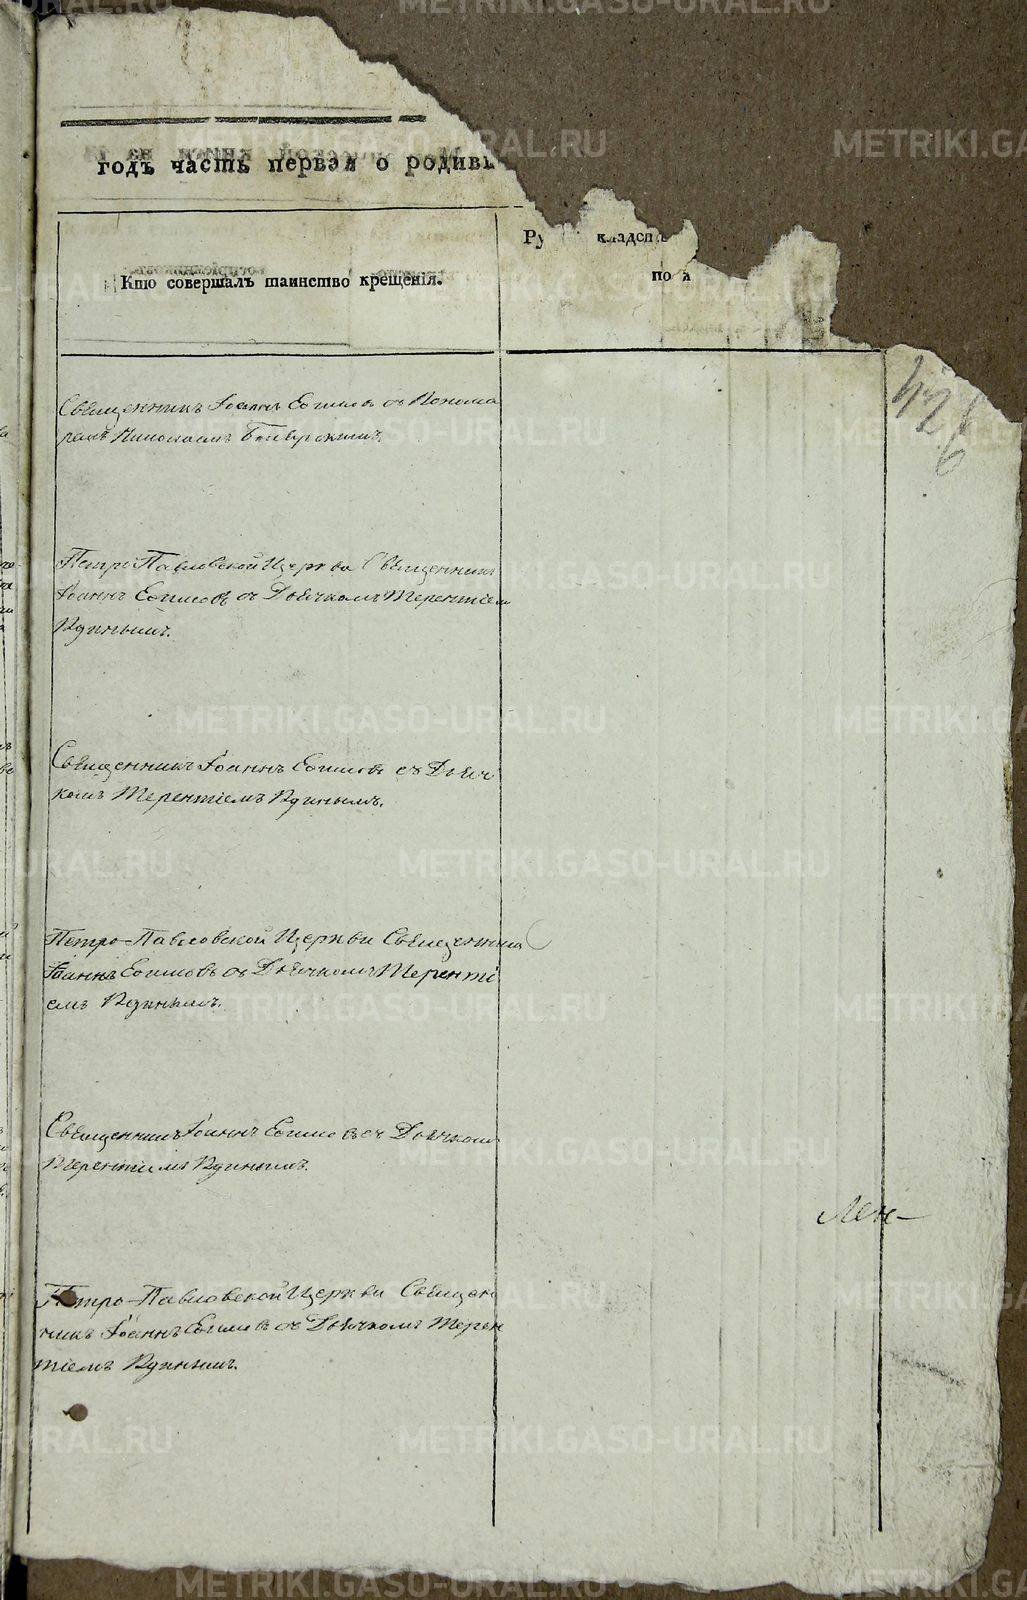 годъ часть первая о родивш
Кто совершалъ таинство крещенія.
Ру кладсп
по я
426
Священникъ Іоаннъ Есимовъ съ Понома
ремъ Николаемъ
Петро-Павловской Церкви Священникъ
Іоаннъ Есимовъ съ Дьячкомъ Терентіем
Юдинымъ.
Священникъ Іоаннъ Есимовъ съ Дьяч
комъ Терентіемъ Юдинымъ.
Петро-Павловской Церкви Священник
Іоаннъ Есимовъ съ Дьячкомъ Теренті
емъ Юдинымъ.
Священникъ Іоаннъ Есимовъ съ Дьячкомъ
Терентіемъ Юдинымъ.
Лен-
Петро-Павловской Церкви Священ
никъ Іоаннъ Есимовъ съ Дьячкомъ Терен
тіемъ Юдинымъ.
METRIKI.GASO-URAL.RU